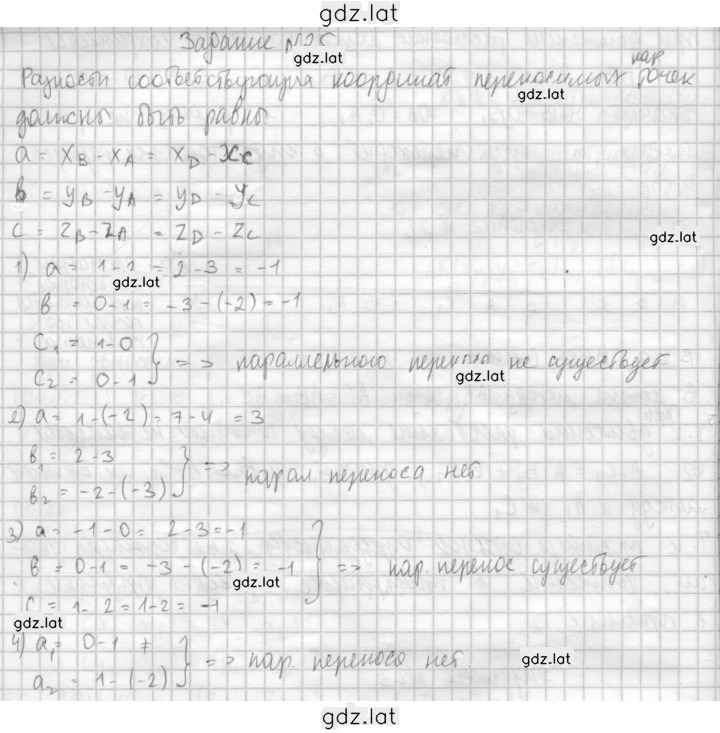 gdz.lat
Задание №25
gdz.lat
Разности соответствующих координат переносимых пар точек
gdz.lat
должны быть равны
a = x_B - x_A = x_D - x_C
b = y_B - y_A = y_D - y_C
c = z_B - z_A = z_D - z_C
gdz.lat
1) a = 1 - 2 = 2 - 3 = -1
gdz.lat
b = 0 - 1 = -3 - (-2) = -1
c₁ = 1 - 0
c₂ = 0 - 1 } => параллельного переноса не существует
gdz.lat
2) a = 1 - (-2) = 7 - 4 = 3
b₁ = 2 - 3
b₂ = -2 - (-3) } => парал переноса нет.
3) a = -1 - 0 = 2 - 3 = -1
b = 0 - 1 = -3 - (-2) = -1 } => пар. перенос существует
gdz.lat
c = 1 - 2 = 1 - 2 = -1
gdz.lat
4) a₁ = 0 - 1 ≠
a₂ = 1 - (-2) } => пар. переноса нет.
gdz.lat
gdz.lat